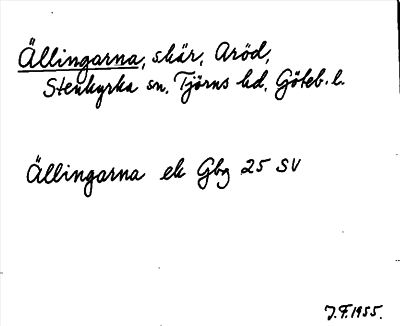 Ällingarna, skär, Aröd,
Stenkyrka sn, Tjörns hd, Göteb. l.
Ällingarna ek Gbg 25 SV
J.F. 1955.